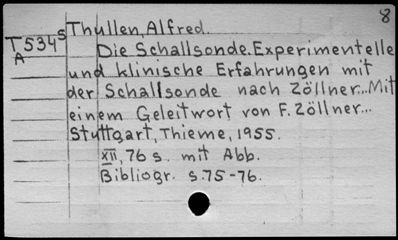 8
Thullen, Alfred.
T534s
A
Die Schallsonde. Experimentelle
und klinische Erfahrungen mit
der Schallsonde nach Zöllner... Mit
einem Geleitwort von F. Zöllner...
Stuttgart, Thieme, 1955.
XII, 76 s. mit Abb.
Bibliogr. s. 75-76.